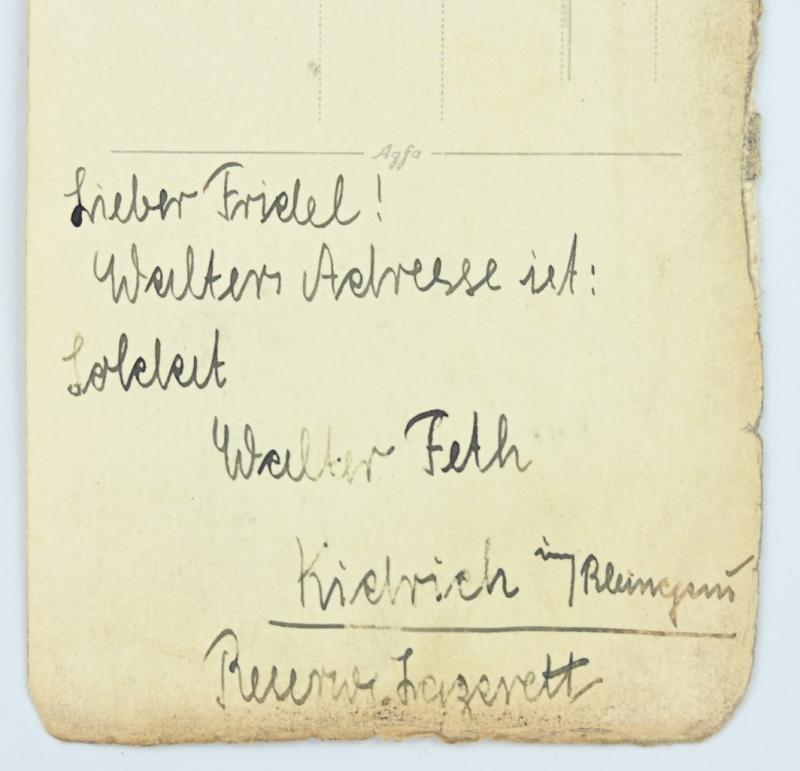 Agfa
Lieber Fridel!
Walters Adresse ist:
Soldat
Walter Feth
Kidrich im Rheingau
Reserve Lazarett